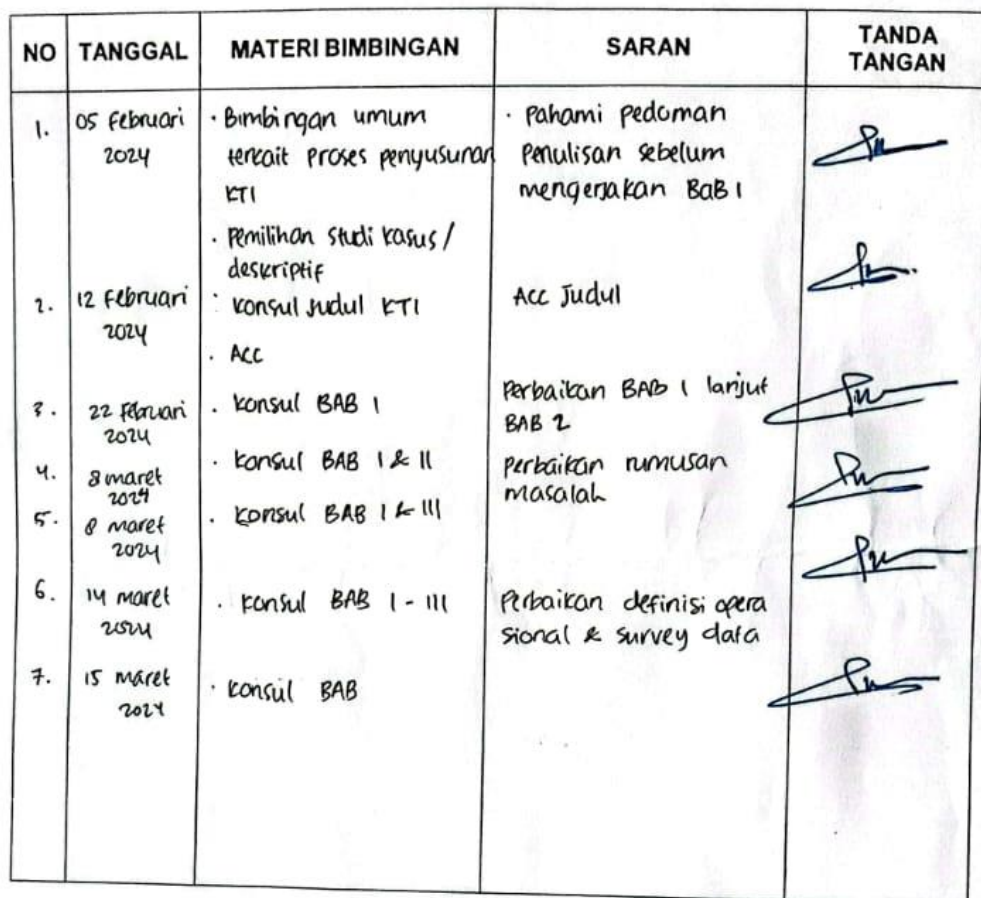 NO TANGGAL MATERI BIMBINGAN SARAN TANDA TANGAN
1. 05 Februari 2024
· Bimbingan umum
terkait proses penyusunan
KTI
· Pemilihan studi kasus /
deskriptif
· Pahami pedoman
Penulisan sebelum
mengerjakan BAB 1
2. 12 Februari 2024
· Konsul Judul KTI
· Acc
Acc Judul
3. 22 Februari 2024
· Konsul BAB I
Perbaikan BAB I lanjut
BAB 2
4. 8 maret 2024
· Konsul BAB I & II
perbaikan rumusan
masalah
5. 8 maret 2024
· Konsul BAB I & III
6. 14 maret 2024
· Konsul BAB I - III
Perbaikan definisi opera
sional & survey data
7. 15 maret 2024
· Konsul BAB